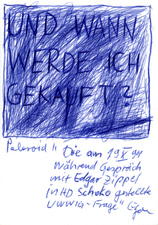 UND WANN
WERDE ICH
GEKAUFT?
Polaroid" Die am 19 X 94
während Gespräch
mit Edgar Zippel
MHD Schoko
UWWIG-Frage"